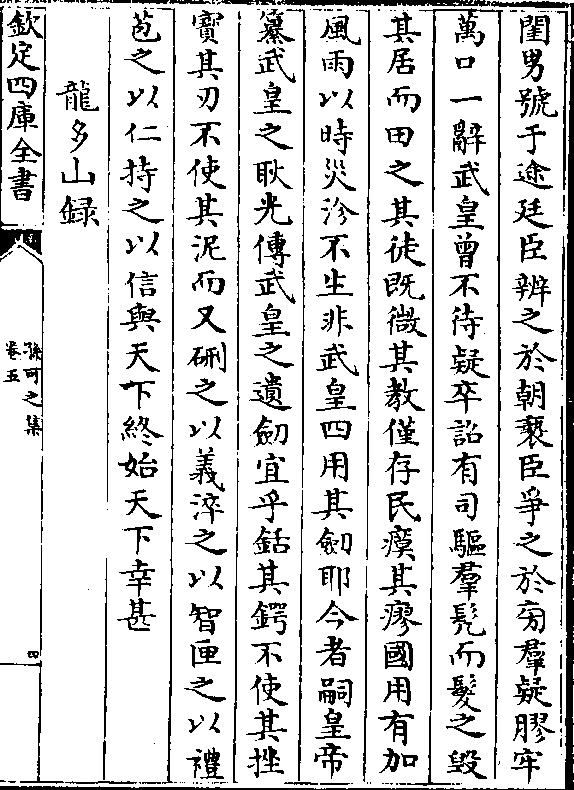 閨男號于途廷臣辨之於朝褻臣爭之於旁羣疑膠牢
萬口一辭武皇曾不待疑卒詔有司驅羣髡而髮之毀
其居而田之其徒既微其教僅存民瘼其瘳國用有加
風雨以時災沴不生非武皇四用其劒耶今者嗣皇帝
纂武皇之耿光傳武皇之遺劒宜乎銛其鍔不使其挫
寳其刃不使其泥而又硎之以義淬之以智匣之以禮
苞之以仁持之以信與天下終始天下幸甚
龍多山録
欽定四庫全書
孫可之集
卷五
四